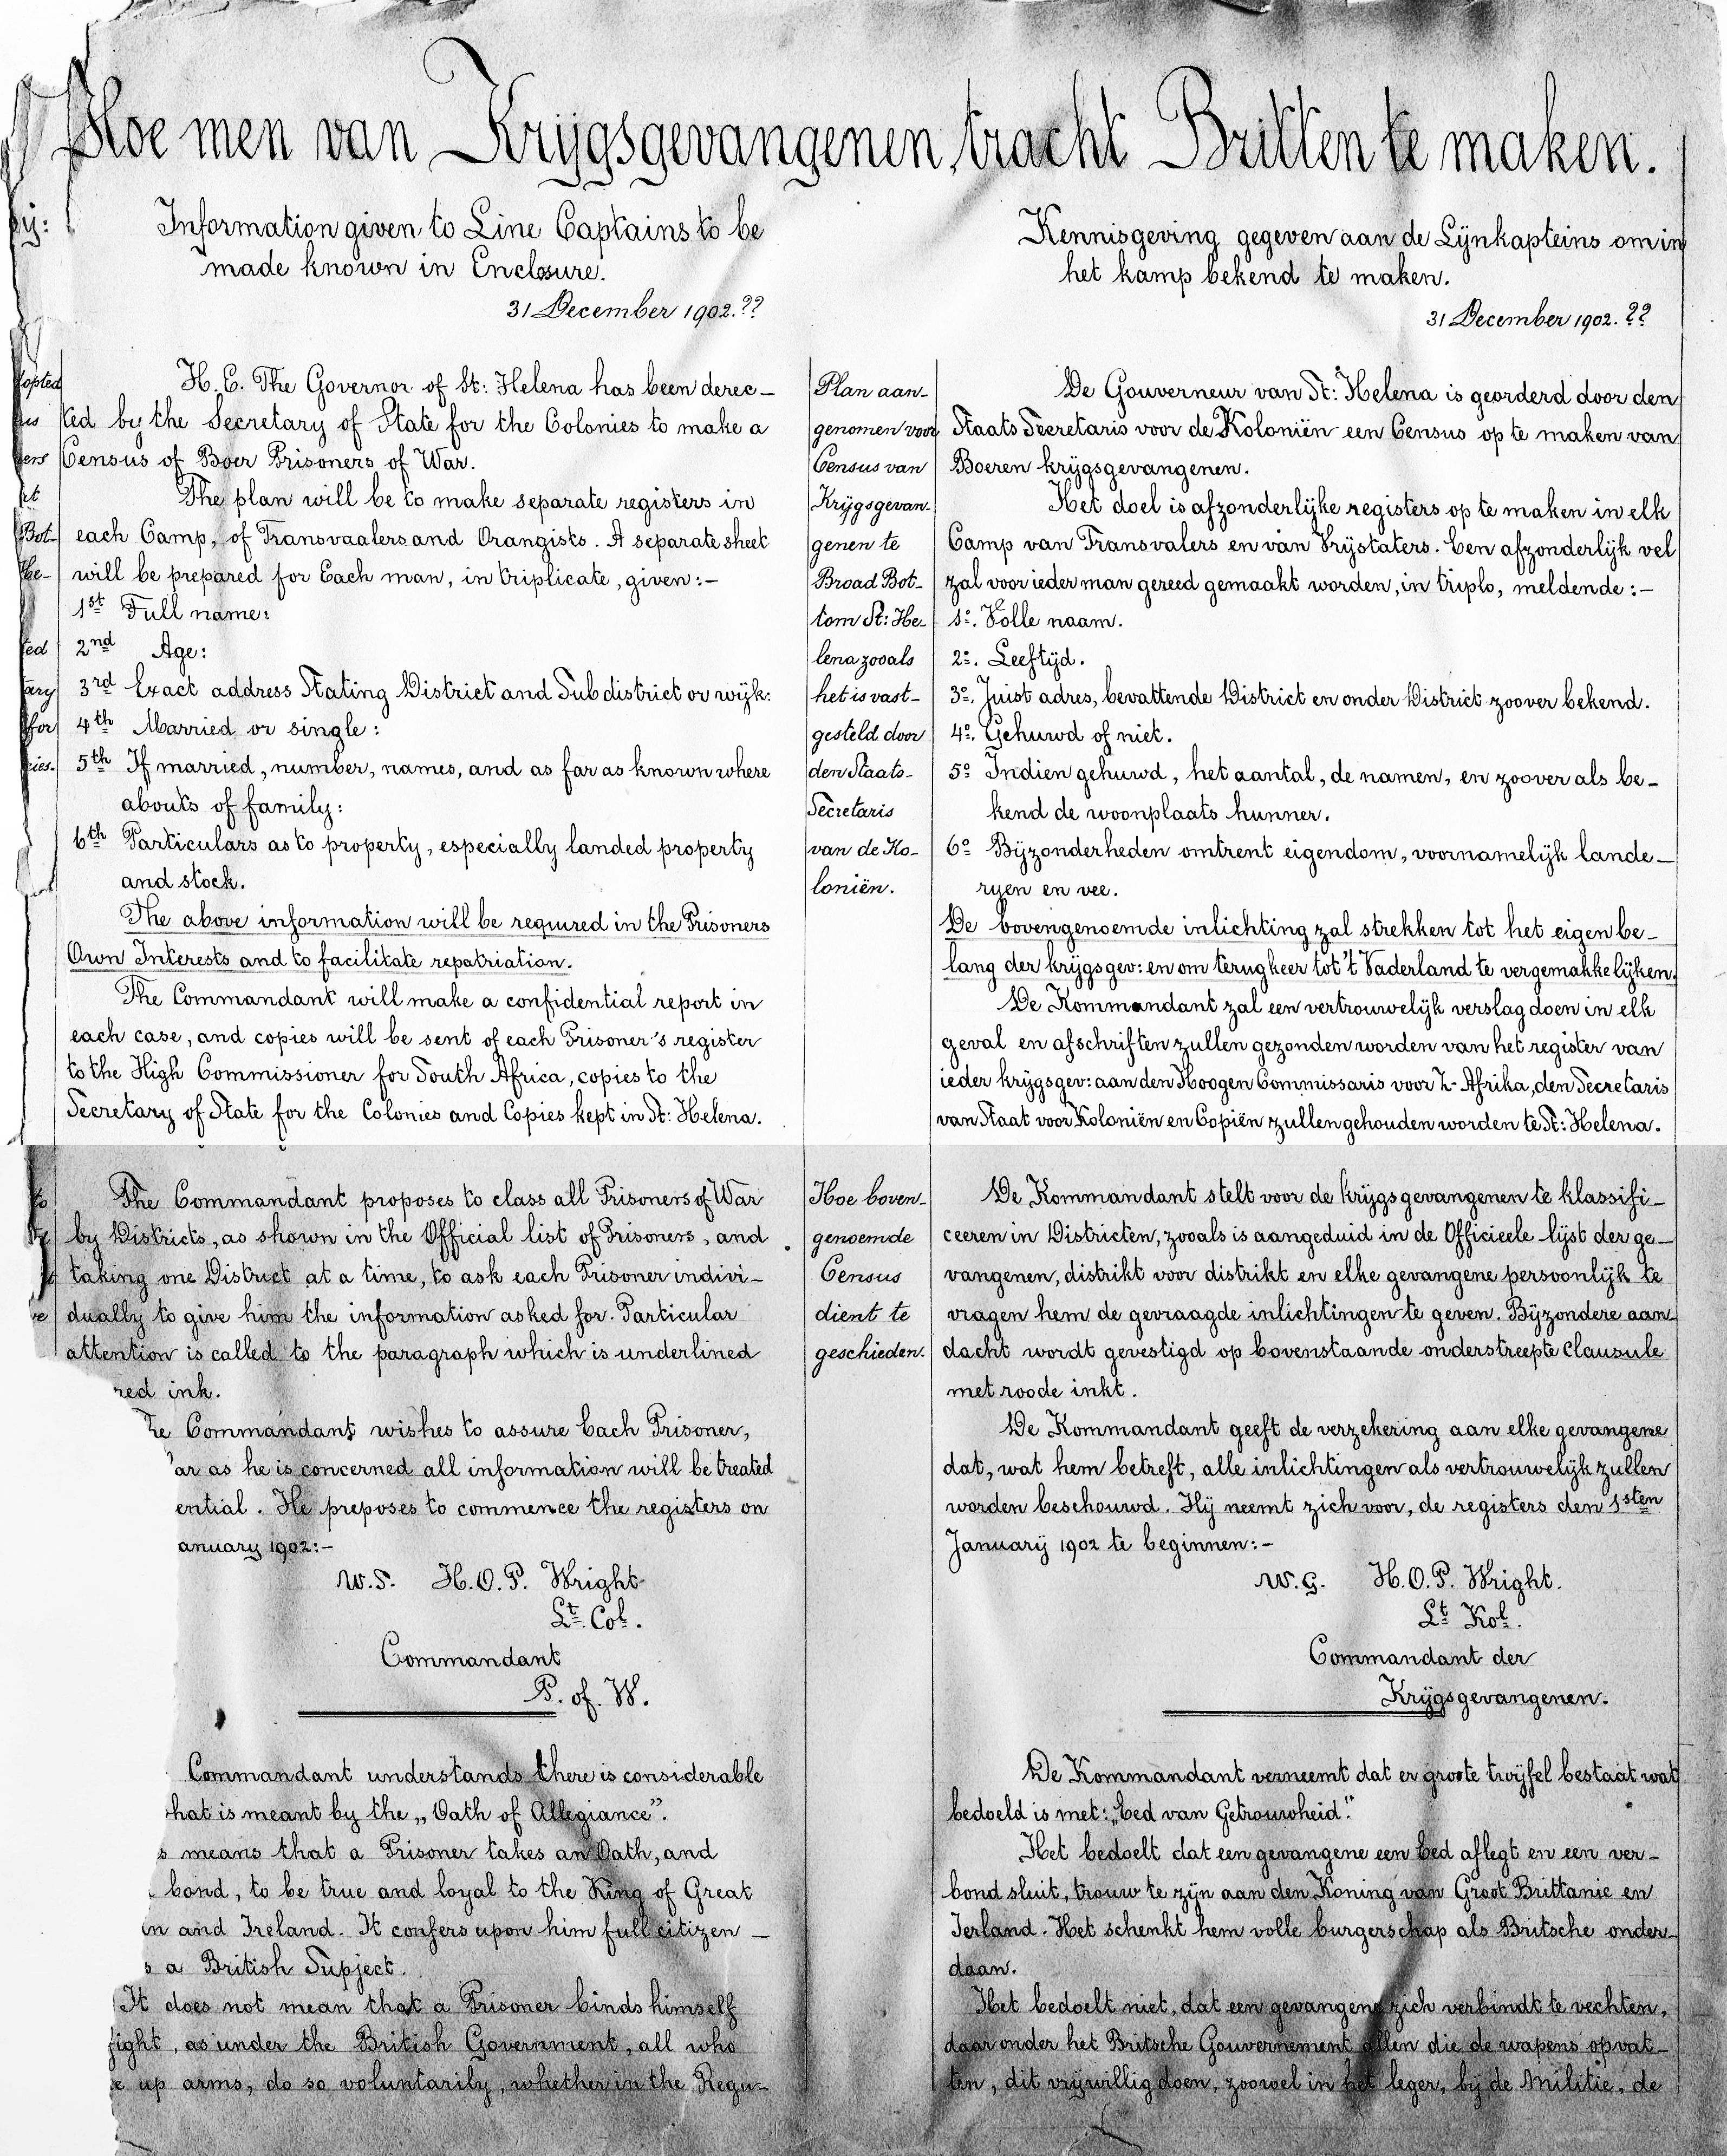 Hoe men van Krijgsgevangenen, tracht Britten te maken.
Information given to Line Captains to be
made known in Enclosure.
31 December 1902.??
H. E. The Governor of St: Helena has been derec-
ted by the Secretary of State for the Colonies to make a
Census of Boer Prisoners of War.
The plan will be to make separate registers in
each Camp, of Transvaalers and Orangists. A separate sheet
will be prepared for Each man, in triplicate, given:-
1st Full name:
2nd Age:
3rd Exact address Stating District and Subdistrict or wijk:
4th Married or single:
5th If married, number, names, and as far as known where
abouts of family:
6th Particulars as to property, especially landed property
and stock.
The above information will be required in the Prisoners
Own Interests and to facilitate repatriation.
The Commandant will make a confidential report in
each case, and copies will be sent of each Prisoner's register
to the High Commissioner for South Africa, copies to the
Secretary of State for the Colonies and Copies kept in St: Helena.
The Commandant proposes to class all Prisoners of War
by Districts, as shown in the Official list of Prisoners, and
taking one District at a time, to ask each Prisoner indivi-
dually to give him the information asked for. Particular
attention is called to the paragraph which is underlined
red ink.
Commandant wishes to assure Each Prisoner,
ar as he is concerned all information will be treated
ential. He preposes to commence the registers on
anuary 1902:-
W.S. H.O.P. Wright
Lt. Col.
Commandant
P. of. W.
Commandant understands there is considerable
hat is meant by the „Oath of Allegiance”.
s means that a Prisoner takes an Oath, and
bond, to be true and loyal to the King of Great
in and Ireland. It confers upon him full citizen-
s a British Supject.
It does not mean that a Prisoner binds himself
fight, as under the British Government, all who
e up arms, do so voluntarily, whether in the Regu-
Plan aan-
genomen voor
Census van
Krijgsgevan-
genen te
Broad Bot-
tom St: He-
lena zooals
het is vast-
gesteld door
den Staats-
Secretaris
van de Ko-
loniën.
Hoe boven-
genoemde
Census
dient te
geschieden.
Kennisgeving gegeven aan de Lijnkapteins om in
het kamp bekend te maken.
31 December 1902. ??
De Gouverneur van St: Helena is georderd door den
Staats Secretaris voor de Koloniën een Census op te maken van
Boeren krijgsgevangenen.
Het doel is afzonderlijke registers op te maken in elk
Camp van Transvalers en van Vrijstaters. Een afzonderlijk vel
zal voor ieder man gereed gemaakt worden, in triplo, meldende:-
1o. Volle naam.
2o. Leeftijd.
3o. Juist adres, bevattende District en onder District zoover bekend.
4o. Gehuwd of niet.
5o Indien gehuwd, het aantal, de namen, en zoover als be-
kend de woonplaats hunner.
6o Bijzonderheden omtrent eigendom, voornamelijk lande-
ryen en vee.
De bovengenoemde inlichting zal strekken tot het eigen be-
lang der krijgsgev: en om terugkeer tot 't Vaderland te vergemakkelijken.
De Kommandant zal een vertrouwelijk verslag doen in elk
geval en afschriften zullen gezonden worden van het register van
ieder krijgsgev: aan den Hoogen Commissaris voor Z-Afrika, den Secretaris
van Staat voor Koloniën en Copiën zullen gehouden worden te St: Helena.
De Kommandant stelt voor de krijgsgevangenen te klassifi-
ceeren in Districten, zooals is aangeduid in de Officieele lijst der ge-
vangenen, distrikt voor distrikt en elke gevangene persoonlijk te
vragen hem de gevraagde inlichtingen te geven. Bijzondere aan-
dacht wordt gevestigd op bovenstaande onderstreepte Clausule
met roode inkt.
De Kommandant geeft de verzekering aan elke gevangene
dat, wat hem betreft, alle inlichtingen als vertrouwelijk zullen
worden beschouwd. Hij neemt zich voor, de registers den 1sten
Januarij 1902 te beginnen:-
W.G. H.O.P. Wright.
Lt Kol.
Commandant der
Krijgsgevangenen.
De Kommandant verneemt dat er groote twijfel bestaat wat
bedoeld is met: „Eed van Getrouwheid.”
Het bedoelt dat een gevangene een Eed aflegt en een ver-
bond sluit, trouw te zijn aan den Koning van Groot Brittanie en
Ierland. Het schenkt hem volle burgerschap als Britsche onder-
daan.
Het bedoelt niet, dat een gevangene zich verbindt te vechten,
daar onder het Britsche Gouvernement allen die de wapens opvat-
ten, dit vrijwillig doen, zoowel in het leger, bij de Militie, de